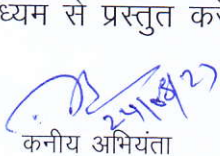 ध्यम से प्रस्तुत कर
24/08/23
कनीय अभियंता